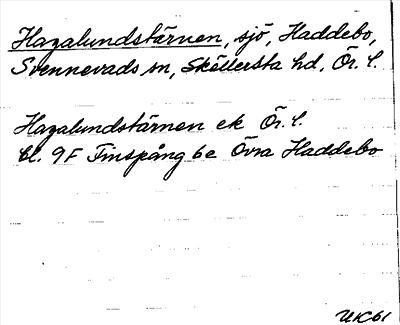 Hagalundstärnen, sjö, Haddebo,
Svennevads sn, Sköllersta hd, Ör. l.
Hagalundstärnen ek Ör. l.
bl. 9F Finspång 6e Övra Haddebo
UK61